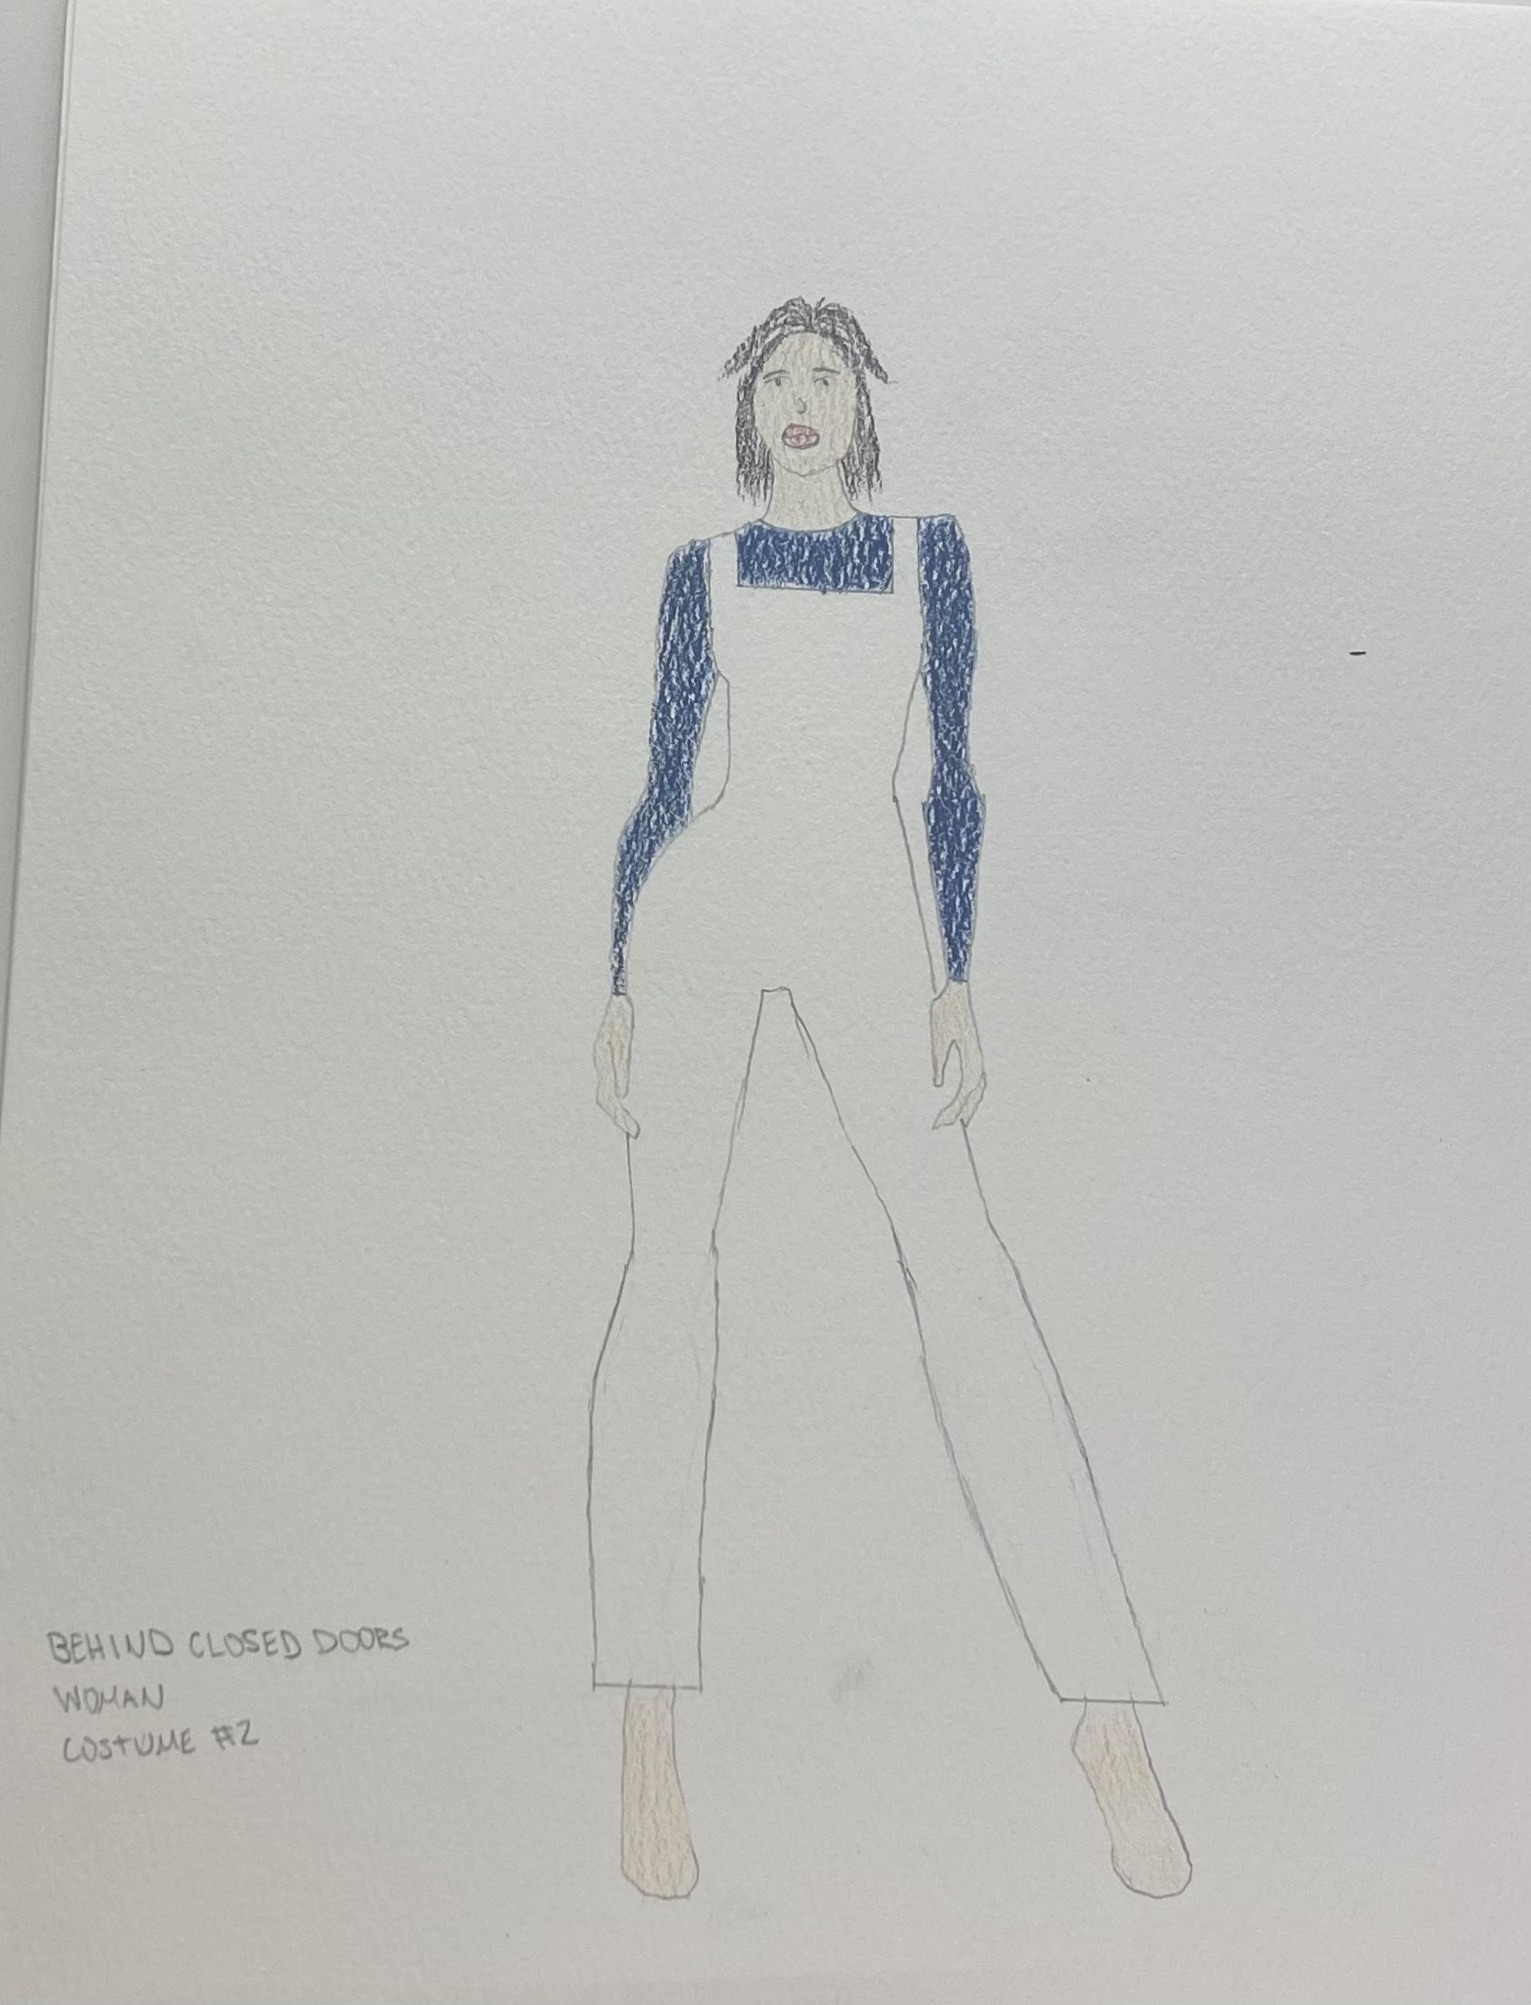 BEHIND CLOSED DOORS
WOMAN
COSTUME #2